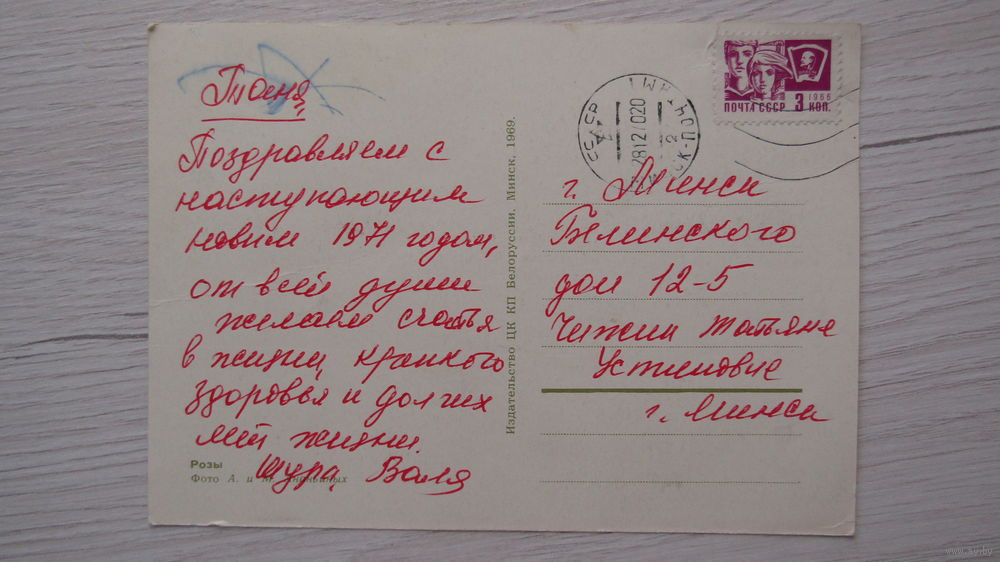 Таня
Поздравляем с
наступающим
новим 1971 годом,
от всей души
желаем счастья
в жизни, крепкого
здоровья и долгих
лет жизни.
Шура, Валя
Розы
Фото А. и
Издательство ЦК КП Белоруссии. Минск, 1969.
ПОЧТА СССР 3 КОП.
1966
2812 7020
г. Минск
Белинского
дом 12-5
Чижик Татьяне
Устиновне
г. Минск
www.ay.by